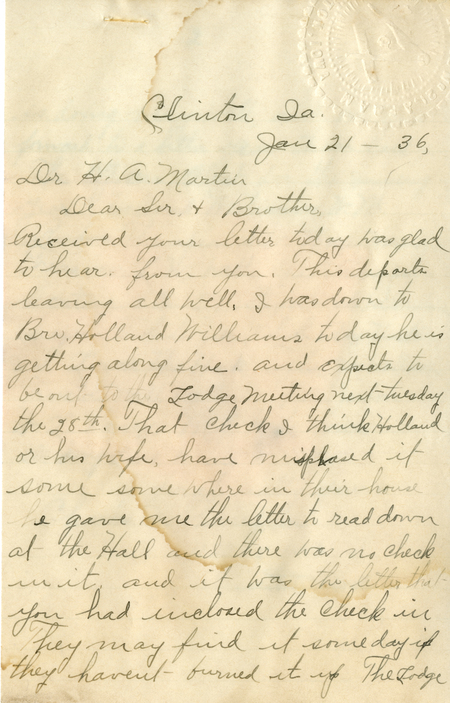 Clinton Ia.
Jan 21 - 36,
Dr H. A. Martin
Dear Sir, & Brother,
Received your letter today was glad
to hear. from you. This departs
leaving all well, I was down to
Bro. Holland Williams today he is
getting along fine. and expects to
be out to the Lodge Meeting next tuesday
the 28th. That check I think Holland
or his wife, have misplased it
some some where in their house
he gave me the letter to read down
at the Hall and there was no check
in it, and it was the letter that
you had inclosed the check in
They may find it someday if
they havent burned it up The Lodge